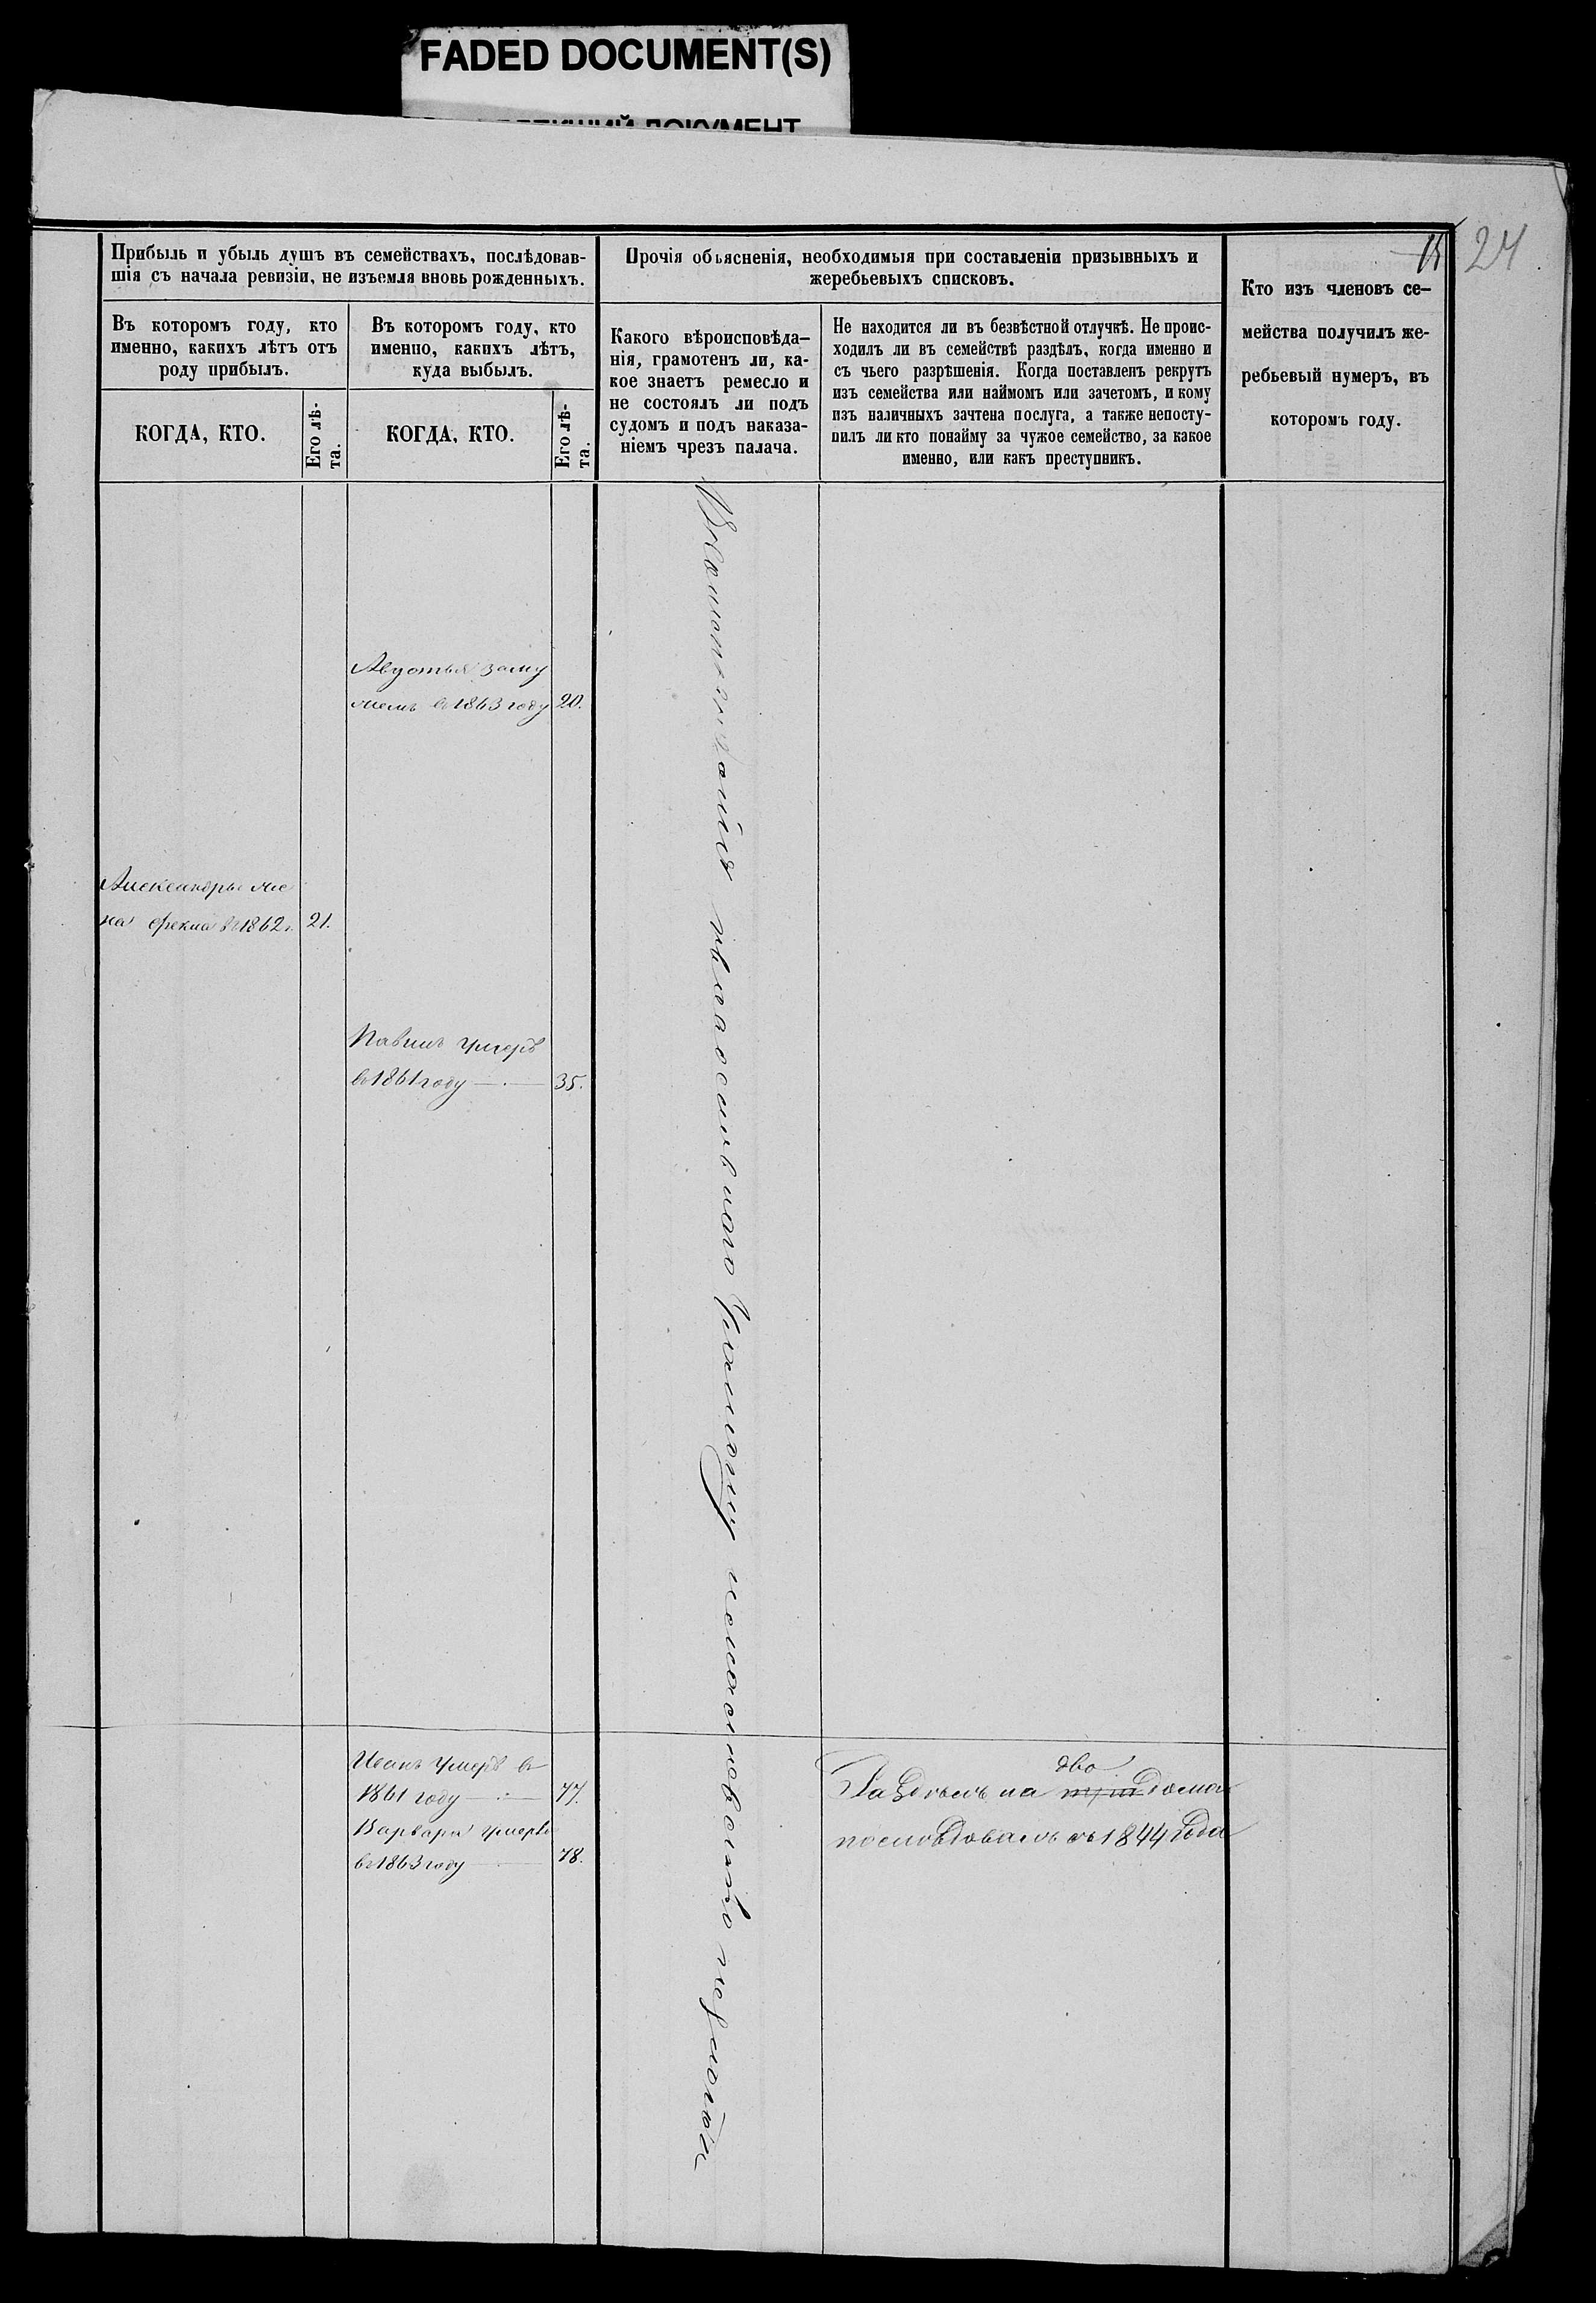 FADED DOCUMENT(S)
ДОКУМЕНТ
24
Прибыль и убыль душъ въ семействахъ, послѣдовав-
шія съ начала ревизіи, не изъемля вновь рожденныхъ.
Въ которомъ году, кто
именно, какихъ лѣтъ отъ
роду прибылъ.
КОГДА, КТО.
Его лѣ-
та.
Въ которомъ году, кто
именно, какихъ лѣтъ,
куда выбылъ.
КОГДА, КТО.
Его лѣ-
та.
Прочія объясненія, необходимыя при составленіи призывныхъ и
жеребьевыхъ списковъ.
Какого вѣроисповѣда-
нія, грамотенъ ли, ка-
кое знаетъ ремесло и
не состоялъ ли подъ
судомъ и подъ наказа-
ніемъ чрезъ палача.
Не находится ли въ безвѣстной отлучкѣ. Не проис-
ходилъ ли въ семействѣ раздѣлъ, когда именно и
съ чьего разрѣшенія. Когда поставленъ рекрутъ
изъ семейства или наймомъ или зачетомъ, и кому
изъ наличныхъ зачтена послуга, а также непосту-
пилъ ли кто понайму за чужое семейство, за какое
именно, или какъ преступникъ.
Кто изъ членовъ се-
мейства получилъ же-
ребьевый нумеръ, въ
которомъ году.
Авдотья заму
жемъ в 1863 году 20.
Александры же
на Фекла в 1862 г. 21.
Павелъ умеръ
в 1861 году 35.
православнаго
Иванъ умеръ в
1861 году 77.
Варвара умерла
в 1863 году 78.
два
Раздѣлъ на три дома
послѣдовалъ съ 1844 года